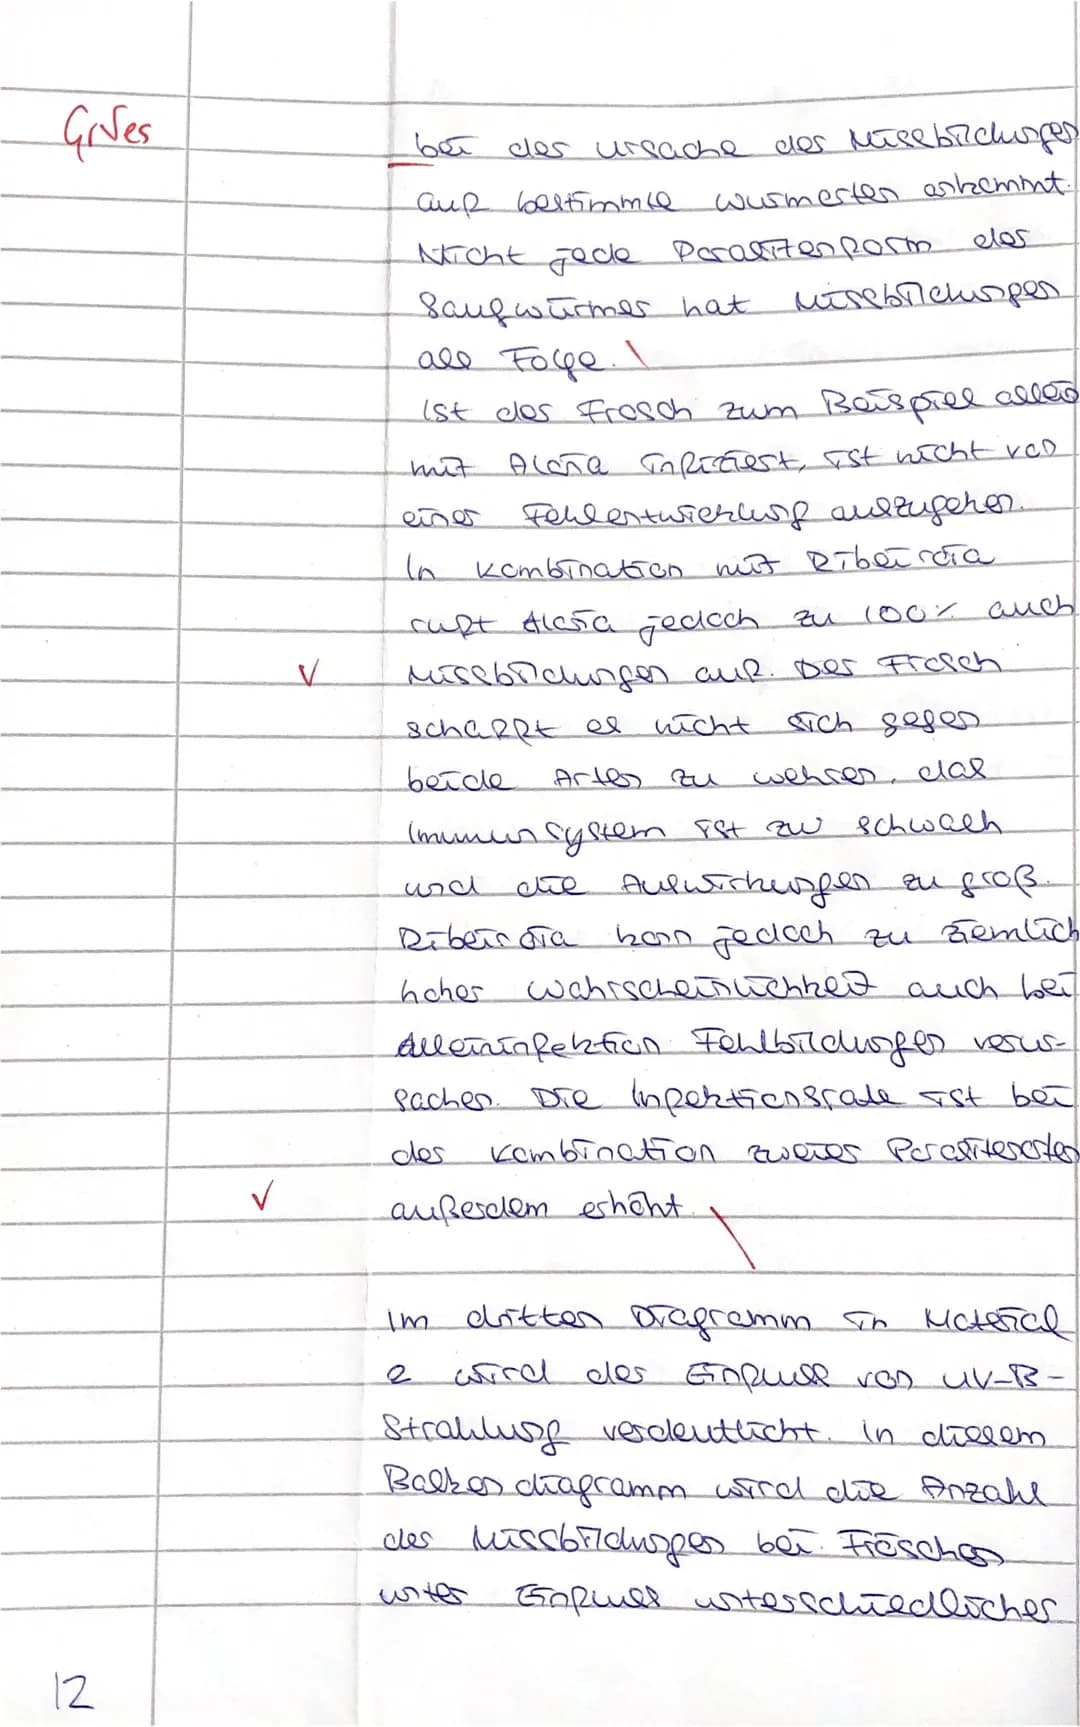 bei der Ursache der Missbildungen
auf bestimmte Wurmarten ankommt.
Nicht jede Parasitenform der
Saugwürmer hat Missbildungen
als Folge.
Ist der Frosch zum Beispiel allein
mit Alaria infiziert, ist nicht von
einer Fehlentwicklung auszugehen.
In Kombination mit Ribeiroia
ruft Alaria jedoch zu 100% auch
Missbildungen auf. Der Frosch
schafft es nicht sich gegen
beide Arten zu wehren, das
Immunsystem ist zu schwach
und die Auswirkungen zu groß.
Ribeiroia kann jedoch zu ziemlich
hoher Wahrscheinlichkeit auch bei
Alleininfektion Fehlbildungen verur-
sachen. Die Infektionsrate ist bei
der Kombination zweier Parasitenarten
außerdem erhöht.
Im dritten Diagramm in Material
2 wird der Einfluss von UV-B-
Strahlung verdeutlicht. In diesem
Balkendiagramm wird die Anzahl
der Missbildungen bei Fröschen
unter Einfluss unterschiedlicher
12